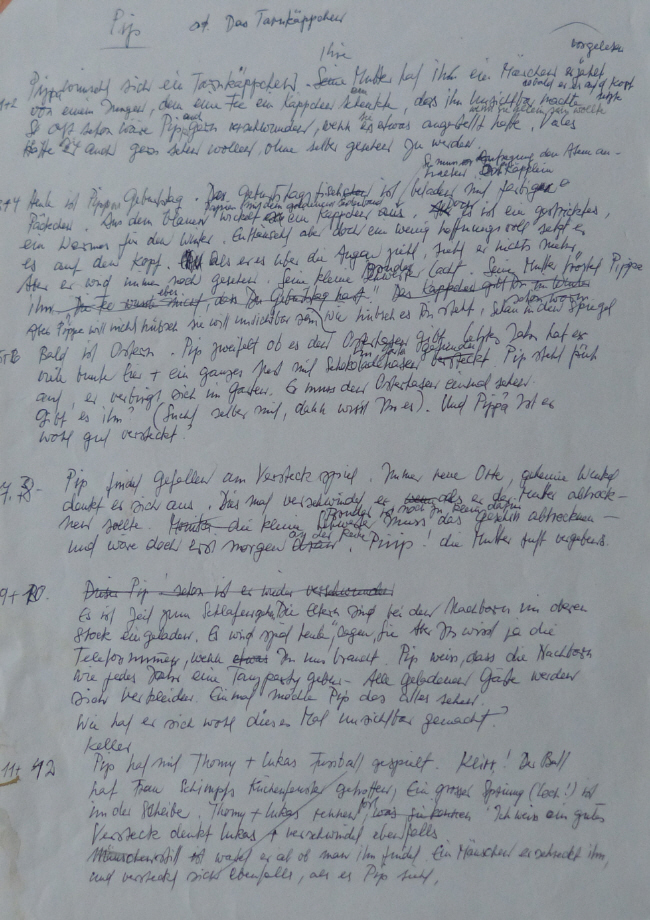 Pip od. Das Tarnkäppchen
Ihre vorgelesen
Pippa wünscht sich ein Tarnkäppchen. Seine Mutter hat ihm ein Märchen erzählt
1+2 von einem Jungen, dem eine Fee ein Käppchen schenkte, das ihn unsichtbar machte
So oft schon wäre Pip gern verschwunden, wenn er etwas angestellt hatte. Vieles
hätte er auch gern sehen wollen, ohne selber gesehen zu werden.
3+4 Heute ist Pippas Geburtstag. Der Geburtstagstisch ist beladen mit farbigen
Päckchen. Aus dem blauen wickelt ein Käppchen aus. es ist ein gestricktes,
ein warmes für den Winter. Enttäuscht aber doch ein wenig hoffnungsvoll setzt er
es auf den Kopf. Als er es über die Augen zieht, sieht er nichts mehr,
Aber er wird immer noch gesehen. Seine kleine Schwester lacht. Seine Mutter tröstet Pippa
Aber Pippa will nicht hübsch sein sie will unsichtbar sein wie hübsch es Dir steht, schau in den Spiegel
5+6 Bald ist Ostern. Pip zweifelt ob es den Osterhasen gibt. Letztes Jahr hat er
viele bunte Eier + ein ganzes Nest mit Schokoladehasen versteckt. Pip steht früh
auf, er verbirgt sich im Garten. Er muss den Osterhasen einmal sehen.
Gibt es ihn? (Sucht selber mit, dann wisst Ihr es). Und Pippa ist er
wohl gut versteckt?
7.8- Pip findet Gefallen am Versteckspiel. Immer neue Orte, geheime Winkel
denkt er sich aus. Dies mal verschwindet er als er der Mutter abtrock-
nen sollte. die kleine Schwester muss das Geschirr abtrocknen
und wäre doch erst morgen an der Reihe. Piiip! die Mutter ruft vergebens.
9+10. Dieser Pip! schon ist er wieder verschwunden
Es ist Zeit zum Schlafengehn. Die Eltern sind bei den Nachbarn im oberen
Stock eingeladen. Es wird spät heute, sagen sie Aber Ihr wisst ja die
Telefonnummer, wenn etwas Ihr uns braucht. Pip weiss, dass die Nachbarn
wie jedes Jahr eine Tanzparty geben - Alle geladenen Gäste werden
sich verkleiden. Einmal möchte Pip das alles sehen.
Wie hat er sich wohl dieses Mal unsichtbar gemacht?
Keller
11+12 Pip hat mit Thomy + Lukas Fussball gespielt. Klirr! Der Ball
hat Frau Schimpfs Küchenfenster getroffen, Ein grosser Sprung (Loch!) ist
in der Scheibe. Thomy + Lukas rennen fort, was sie können. Ich weiss ein gutes
Versteck denkt Lukas + verschwindet ebenfalls.
Mäuschenstill ist wartet er ab ob man ihn findet. Ein Mäuschen erschreckt ihn,
und versteckt sich ebenfalls, als es Pip sieht,